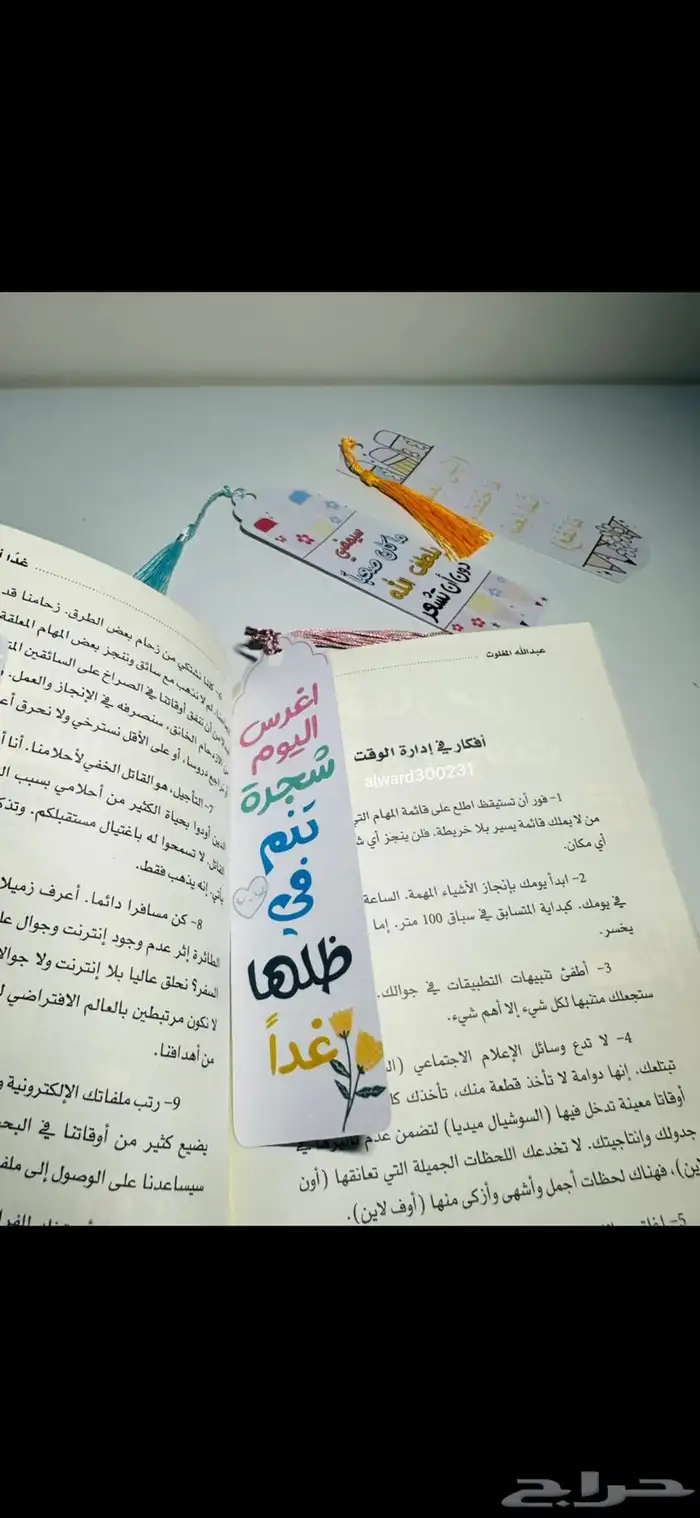 سيمضي
ما كان صعباً
بلطف الله
دون أن تشعر
اغرس
اليوم
شجرة
تنم
في
ظلها
غداً
عبدالله المغلوث
أفكار في إدارة الوقت
alward300231
1- فور أن تستيقظ اطلع على قائمة المهام التي
من لا يملك قائمة يسير بلا خريطة. فلن ينجز أي
أي مكان.
2- ابدأ يومك بإنجاز الأشياء المهمة. الساعة
في يومك. كبداية المتسابق في سباق 100 متر. إما
يخسر.
3- أطفئ تنبيهات التطبيقات في جوالك.
ستجعلك منتبها لكل شيء إلا أهم شيء.
4- لا تدع وسائل الإعلام الاجتماعي
تبتلعك. إنها دوامة لا تأخذ قطعة منك، تأخذك
أوقاتا معينة تدخل فيها (السوشيال ميديا) لتضمن عدم
جدولك وإنتاجيتك. لا تخدعك اللحظات الجميلة التي تعانقها (أون
لاين)، فهناك لحظات أجمل وأشهى وأزكى منها (أوف لاين).
5-
غدًا
6- كلنا نشتكي من زحام بعض الطرق. زحامنا قد
لم لا نذهب مع سائق وننجز بعض المهام المعلقة
من أن ننفق أوقاتنا في الصراخ على السائقين
الازدحام الخانق، سنصرفه في الإنجاز والعمل.
نراجع دروسا، أو على الأقل نسترخي ولا نحرق
7- التأجيل، هو القاتل الخفي لأحلامنا. أنا
الذين أودوا بحياة الكثير من أحلامي بسبب
القاتل. لا تسمحوا له باغتيال مستقبلكم.
يأتي. إنه يذهب فقط.
8- كن مسافرا دائما. أعرف زميلا
الطائرة إثر عدم وجود إنترنت وجوال
السفر؟ نحلق عاليا بلا إنترنت ولا
لا نكون مرتبطين بالعالم الافتراضي
من أهدافنا.
9- رتب ملفاتك الإلكترونية
يضيع كثير من أوقاتنا في
سيساعدنا على الوصول إلى
حراج